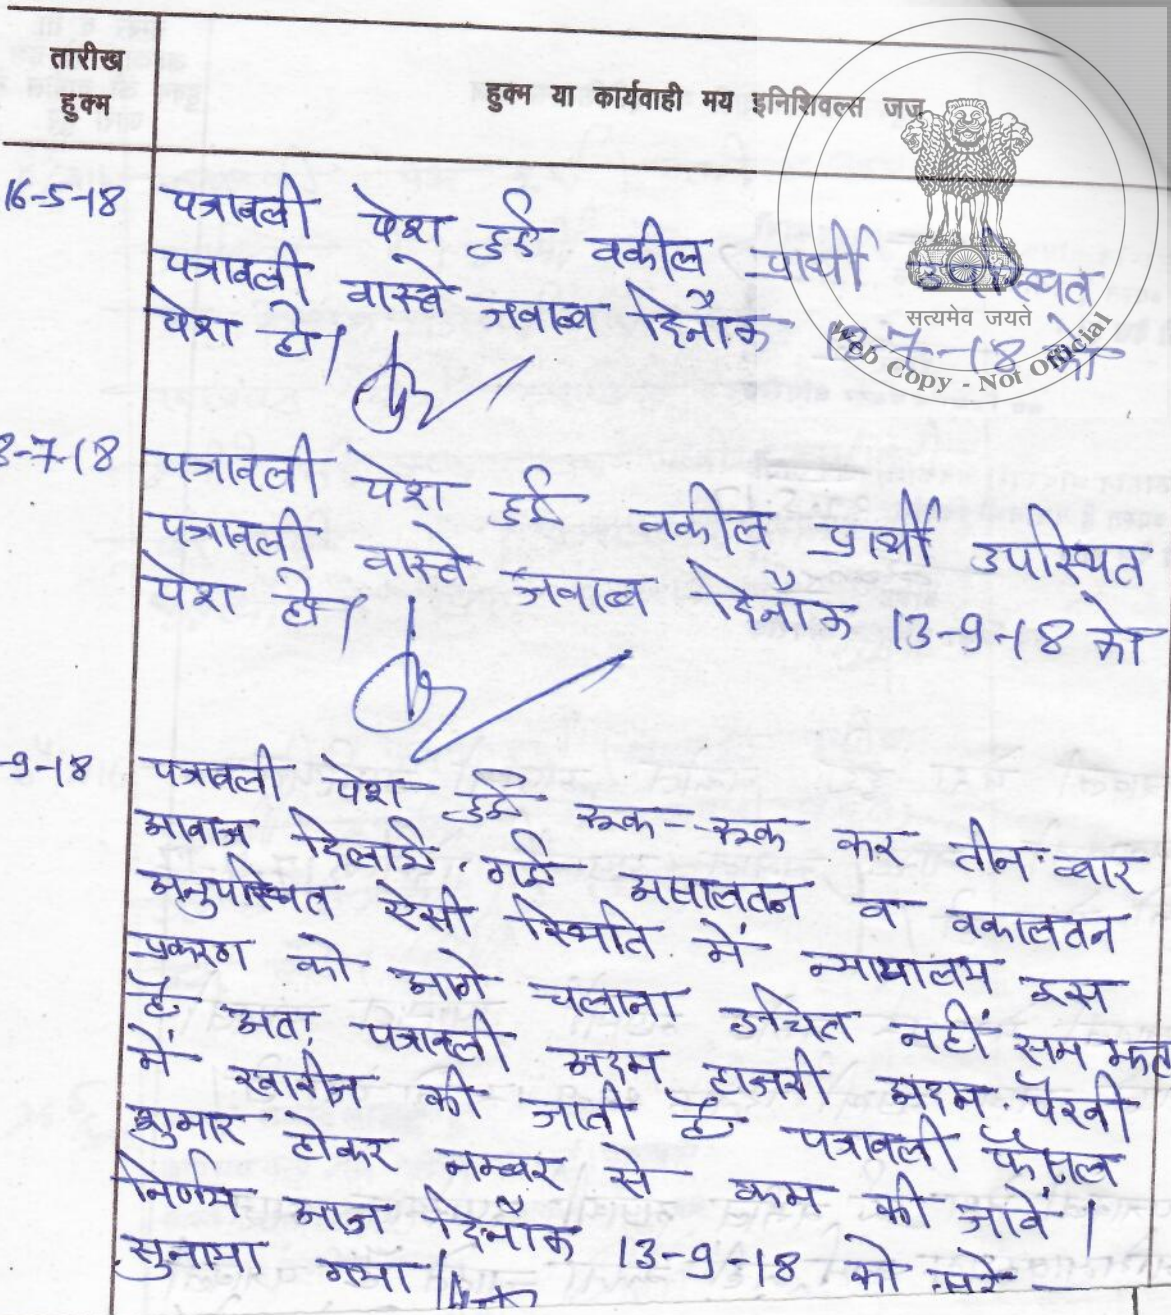 तारीख
हुक्म
हुक्म या कार्यवाही मय इनिशिवल्स जज
सत्यमेव जयते
Web Copy - Not Official
16-5-18 पत्रावली पेश हुई वकील प्रार्थी उपस्थित
पत्रावली वास्ते जवाब दिनाँक 18-7-18 को
पेश हो।
8-7-18 पत्रावली पेश हुई वकील प्रार्थी उपस्थित
पत्रावली वास्ते जवाब दिनाँक 13-9-18 को
पेश हो।
-9-18 पत्रावली पेश हुई रूक-रूक कर तीन बार
आवाज दिलाई गई असालतन व वकालतन
अनुपस्थित ऐसी स्थिति में न्यायालय इस
प्रकरण को आगे चलाना उचित नहीं समझता
है अतः पत्रावली अदम हाजरी अदम पैरवी
में खारीज की जाती है पत्रावली फैसल
शुमार होकर नम्बर से कम की जावें।
निर्णय आज दिनाँक 13-9-18 को सरे
सुनाया गया।